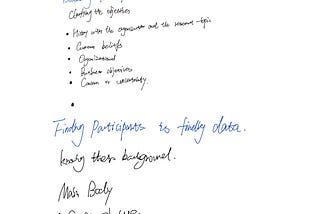 Clarifying the objectives
• History with the organisation and the research topic
• Current beliefs
• Organizational
• Business objectives
• Concern or uncertainty.
•
Finding Participants is finding data.
knowing their background.
Main Body